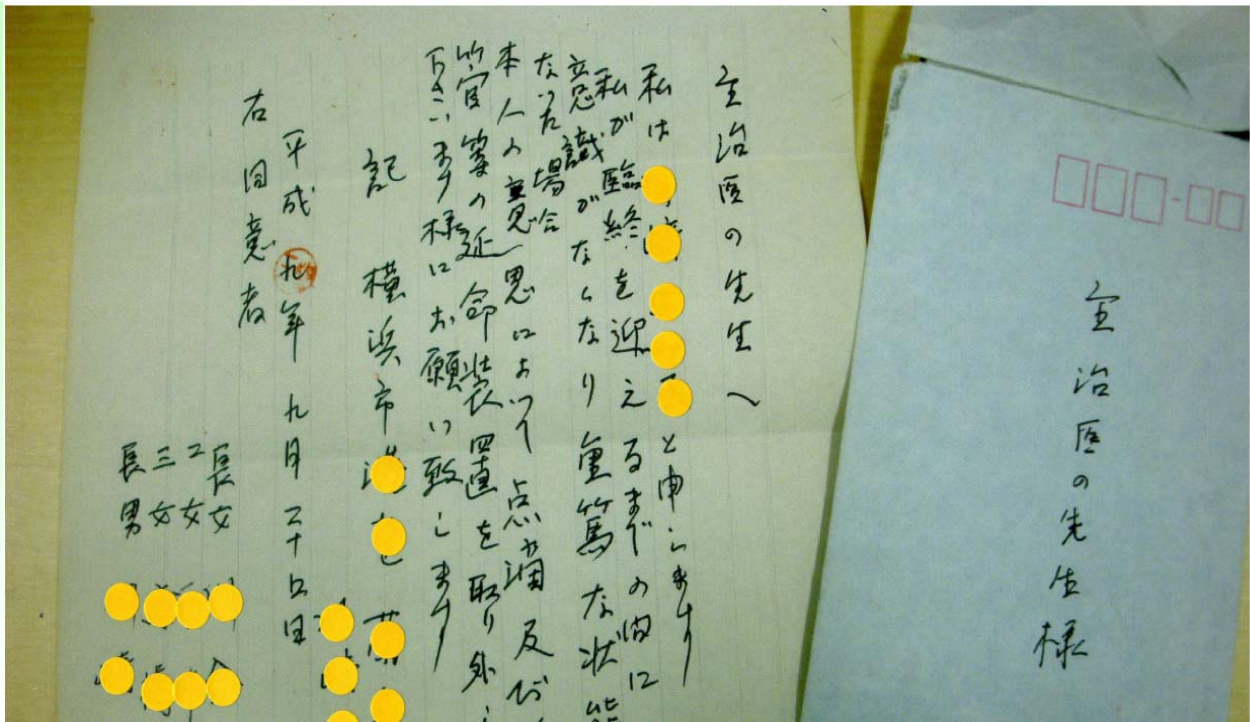 主治医の先生様
主治医の先生へ
私は と申します
私が臨終を迎えるまでの間に
意識がなくなり重篤な状態
なった場合
本人の意思によって点滴及び
管等の延命装置を取り外し
下さいます様にお願い致します
記 横浜市
平成九年 九月
右同意者
長女
二女
三女
長男